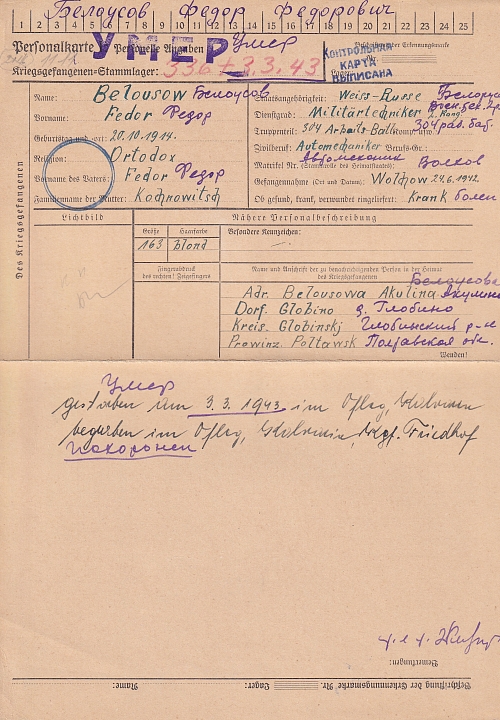 Белоусов Федор Федорович
1 2 3 4 5 6 7 8 9 10 11 12 13 14 15 16 17 18 19 20 21 22 23 24 25
Personalkarte I: Personelle Angaben
УМЕР Умер
КОНТРОЛЬНАЯ
КАРТА
ВЫПИСАНА
Kriegsgefangenen-Stammlager: 336 † 3.3.43
Lager:
Des Kriegsgefangenen
Name: Belousow Белоусов
Vorname: Fedor Федор
Geburtstag und -ort: 20.10.1914.
Religion: Ortodox
Vorname des Vaters: Fedor Федор
Familienname der Mutter: Kochnowitsch
Staatsangehörigkeit: Weiss-Russe
Dienstgrad: Militärtechniker 2. Rang
Truppenteil: 304 Arbeits-Batl. 304 раб. бат.
Zivilberuf: Automechaniker Berufs-Gr.:
Автомеханик
Matrikel Nr. (Stammrolle des Heimatstaates): Волхов
Gefangennahme (Ort und Datum): Wolchow 24.6.1942.
Ob gesund, krank, verwundet eingeliefert: Krank болен
Lichtbild
Nähere Personalbeschreibung
Größe Haarfarbe Besondere Kennzeichen:
163 blond
Fingerabdruck
des rechten Zeigefingers
Name und Anschrift der zu benachrichtigenden Person in der Heimat
des Kriegsgefangenen
Белоусова
Adr. Belousowa Akulina Акулина
Dorf. Globino д. Глобино
Kreis. Globinskj Глобинский р-н
Prowinz. Poltawsk Полтавская обл.
Wenden!
Умер
gestorben am 3.3.1943 im Oflag,
begraben im Oflag, Kgf. Friedhof
похоронен
Bemerkungen:
Beschriftung der Erkennungsmarke Nr. Lager: Name: